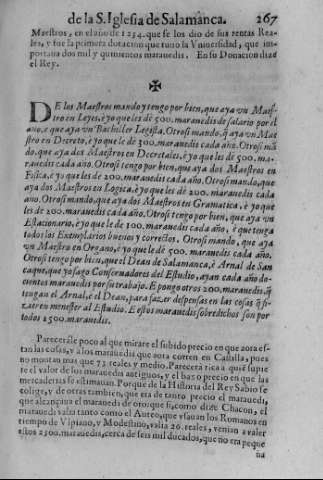 de la S. Iglesia de Salamanca. 267
Maestros, en el año de 1254. que se los dio de sus rentas Rea-
les, y fue la primera dotacion que tuuo la Vniuersidad, que im-
portaua dos mil y quinientos marauedis. En su Donacion dize
el Rey.
✠
DE los Maestros mando y tengo por bien, que aya vn Maes-
tro en Leyes, è yo que les dè 500. marauedis de salario por el
año, e que aya vn Bachiller Legista. Otrosi mando, q̃ aya vn Maes-
tro en Decreto, è yo que le dè 300. marauedis cada año. Otrosi mã
do, que aya dos Maestros en Decretales, è yo que les dè 500. ma-
rauedis cada año. Otrosi tengo por bien, que aya dos Maestros en
Fisica, è yo que les dè 200. marauedis cada año. Otrosi mando, que
aya dos Maestros en Logica, è yo que les dè 200. marauedis cada
año. Otrosi mando, que aya dos Maestros en Gramatica, è yo que
les dè 200. marauedis cada año. Otrosi tengo por bien, que aya vn
Estacionario, è yo que le dè 100. marauedis cada año, è que tenga
todos los Exemplarios buenos y correctos. Otrosi mando, que aya
vn Maestro en Organo, è yo que le dè 50. marauedis cada año.
Otrosi tengo por bien, que el Dean de Salamanca, è Arnal de San-
caque, que yo fago Conseruadores del Estudio, ayan cada año do-
cientos marauedis por su trabajo. E pongo otros 200. marauedis, q̃
tengan el Arnal, è el Dean, para fazer despensas en las cosas q̃ fi-
zieren menester al Estudio. E estos marauedis sobredichos son por
todos 2500. marauedis.
Parecerále poco al que mirare el subido precio en que aora es-
tan las cosas, y a los marauedis que aora corren en Castilla, pues
no montan mas que 73 reales y medio. Parecerà rica a quiẽ supie
re el valor de los marauedis antiguos, y el baxo precio en que las
mercaderias se estimauan. Porque de la Historia del Rey Sabio se
colige, y de otras tambien, que era de tanto precio el marauedi,
que alcançaua el marauedi de oro que si, como dize Chacon, el
marauedi valia tanto como el Aureo, que vsauan los Romanos en
tiempo de Vlpiano, y Modestino, valia 26. reales, venian a valer
estos 2500. marauedis, cerca de seis mil ducados, que no era peque
na